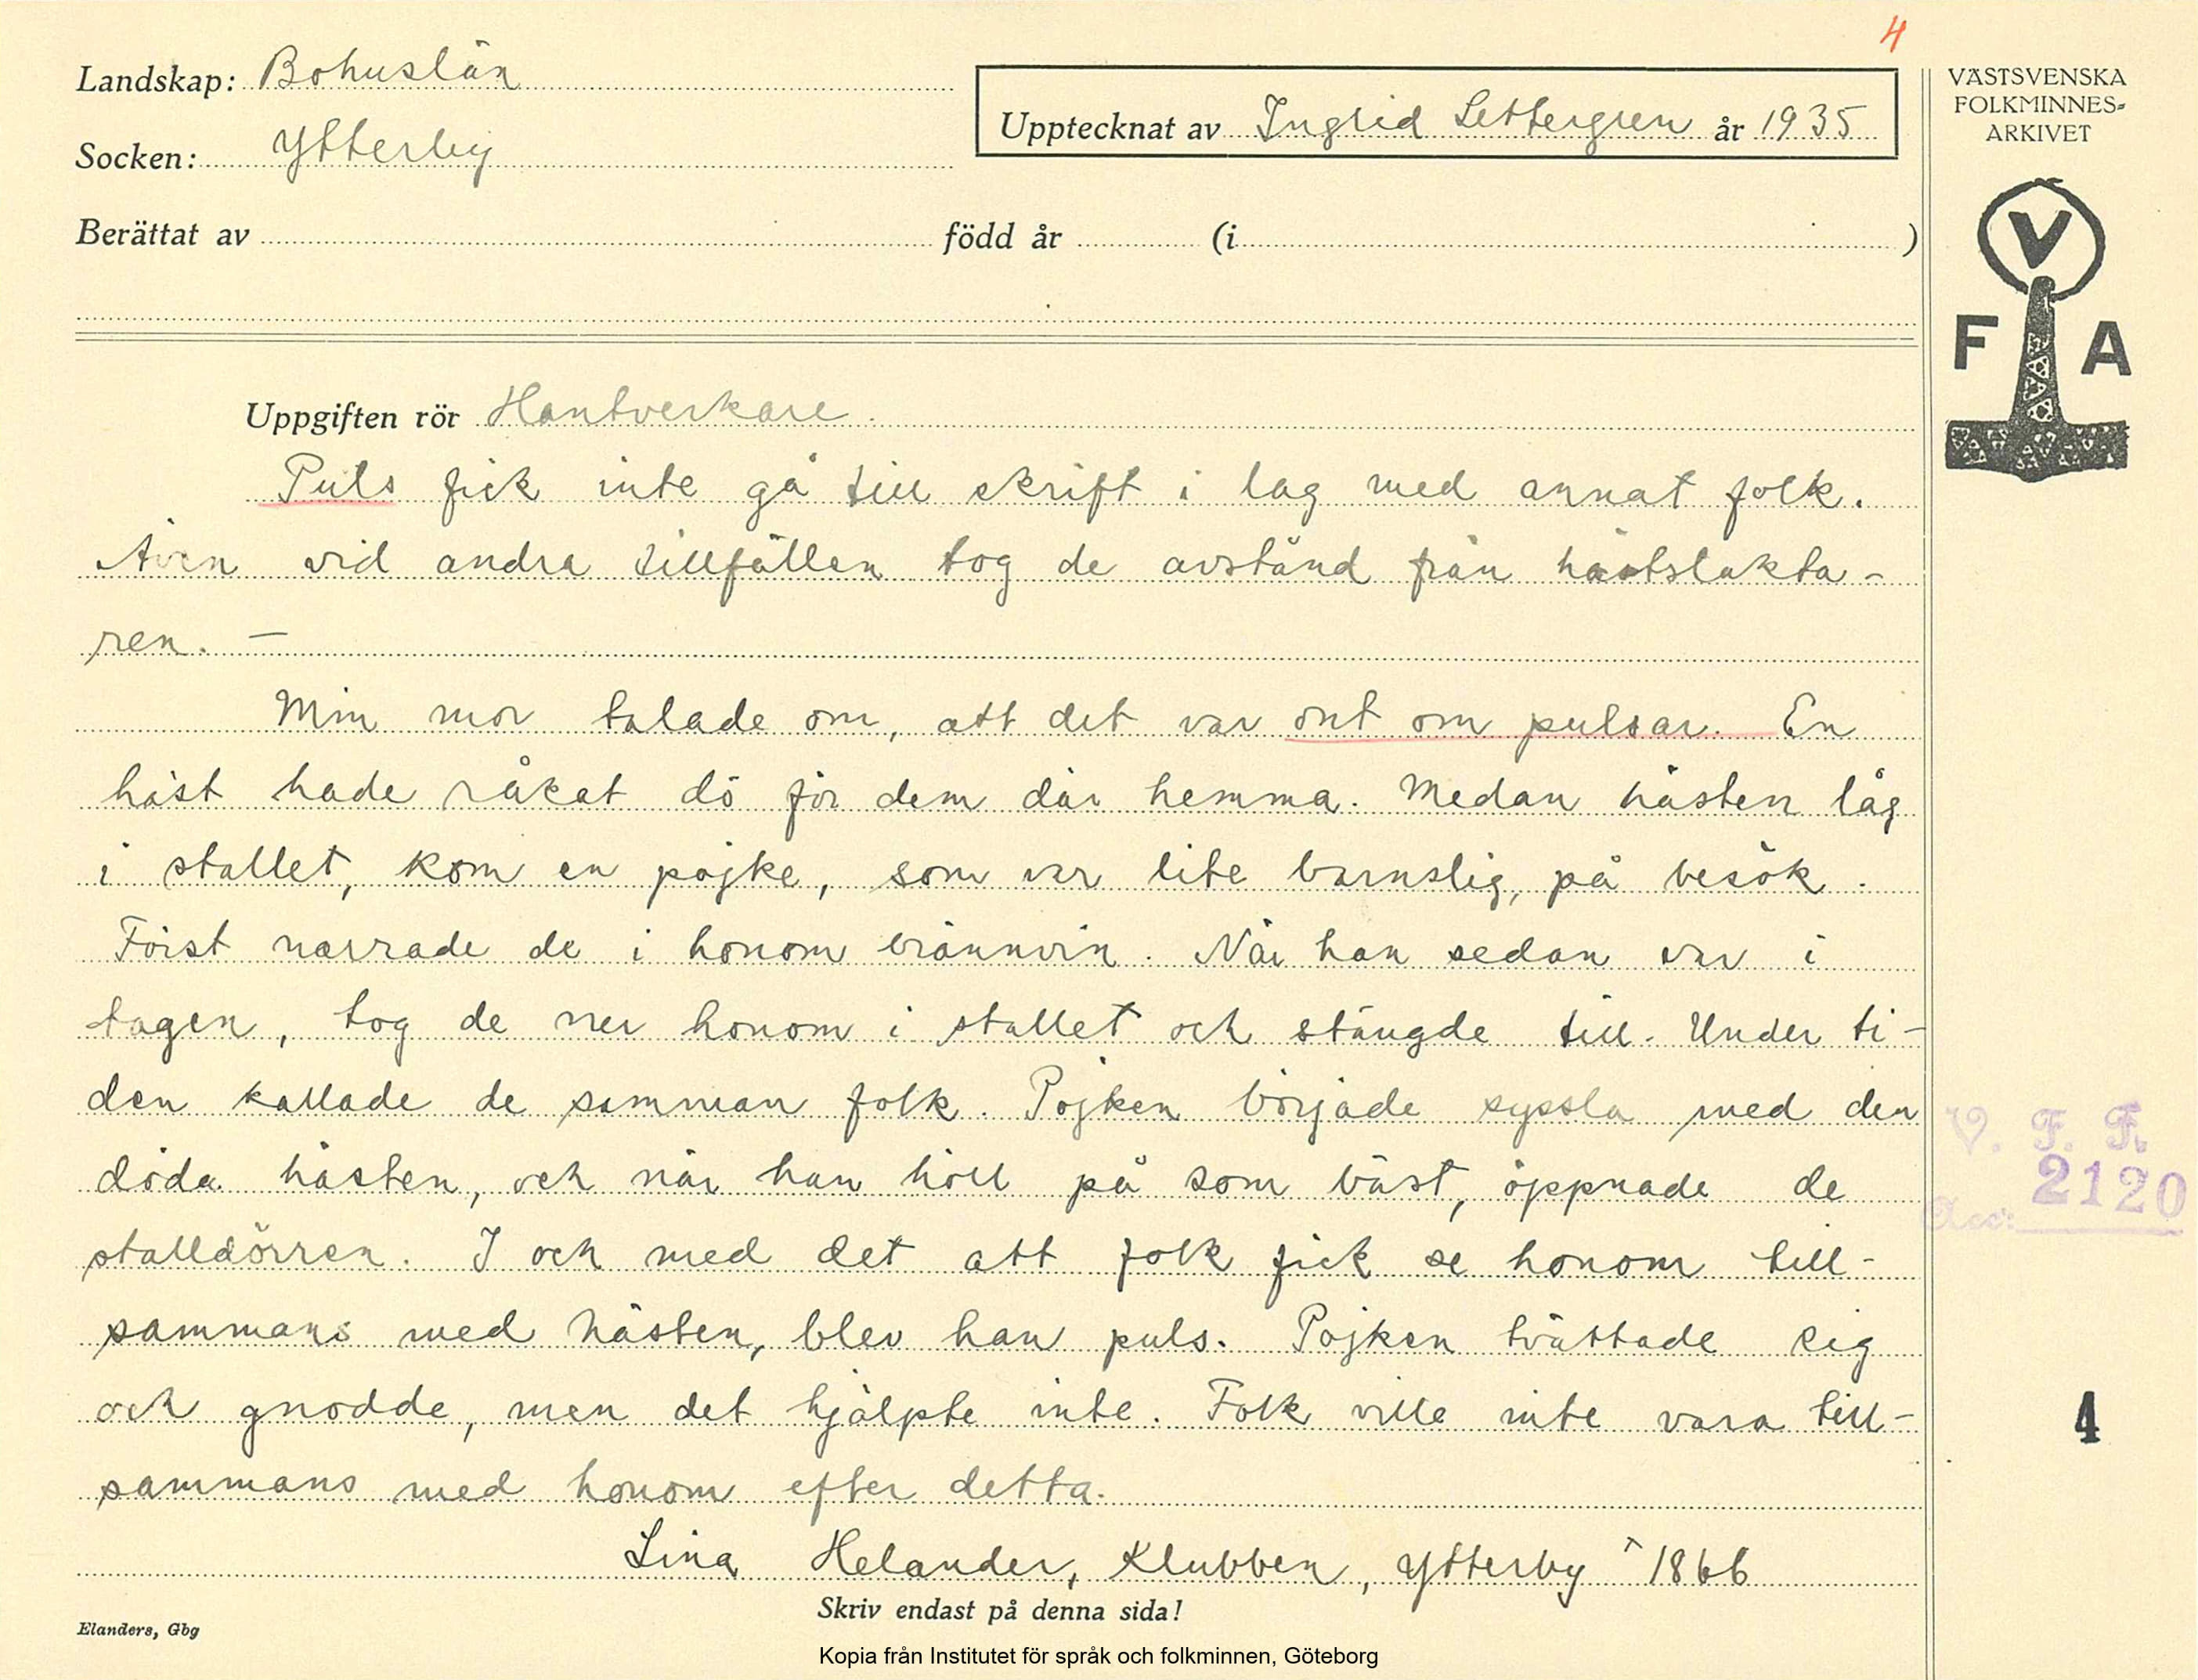 4
Landskap: Bohuslän
Socken: Ytterby
Upptecknat av Ingrid Settergren år 1935
Berättat av född år (i )
VÄSTSVENSKA
FOLKMINNES-
ARKIVET
V
F A
Uppgiften rör Hantverkare.
Puls fick inte gå till skrift i lag med annat folk.
Även vid andra tillfällen tog de avstånd från hästslakta-
ren. —
Min mor talade om, att det var ont om pulsar. En
häst hade råkat dö för dem där hemma. Medan hästen låg
i stallet, kom en pojke, som var lite barnslig, på besök.
Först narrade de i honom brännvin. När han sedan var i
tagen, tog de ner honom i stallet och stängde till. Under ti-
den kallade de samman folk. Pojken började syssla med den
döda hästen, och när han höll på som bäst, öppnade de
stalldörren. I och med det att folk fick se honom till-
sammans med hästen, blev han puls. Pojken tvättade sig
och gnodde, men det hjälpte inte. Folk ville inte vara till-
sammans med honom efter detta.
Lina Helander, Klubben, Ytterby 1866
V. F. F.
Acc: 2120
4
Skriv endast på denna sida!
Elanders, Gbg
Kopia från Institutet för språk och folkminnen, Göteborg